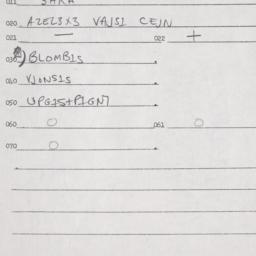 020 AZEL3X3 VAJSI CEJN
021 — 022 +
030 BLOMBIS
040 VJONSIS
050 UPGIS+PIGNT
060 O 061 O
070 O